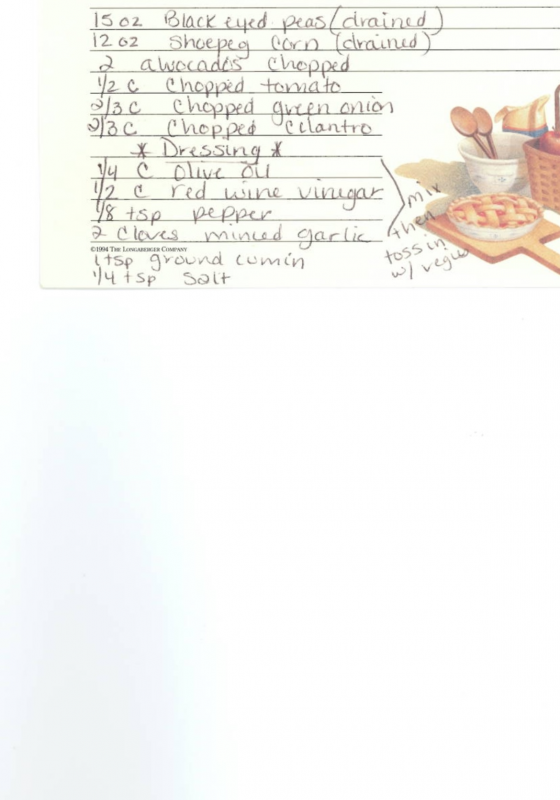 15 oz Black eyed peas (drained)
12 oz Shoepeg Corn (drained)
2 avocados chopped
1/2 C Chopped tomato
2/3 C Chopped green onion
2/3 C Chopped Cilantro
* Dressing *
1/4 C Olive Oil
1/2 C red wine vinegar
1/8 tsp pepper
2 Cloves minced garlic
©1994 THE LONGABERGER COMPANY
1 tsp ground cumin
1/4 tsp Salt
mix
then
toss in
w/ vegies